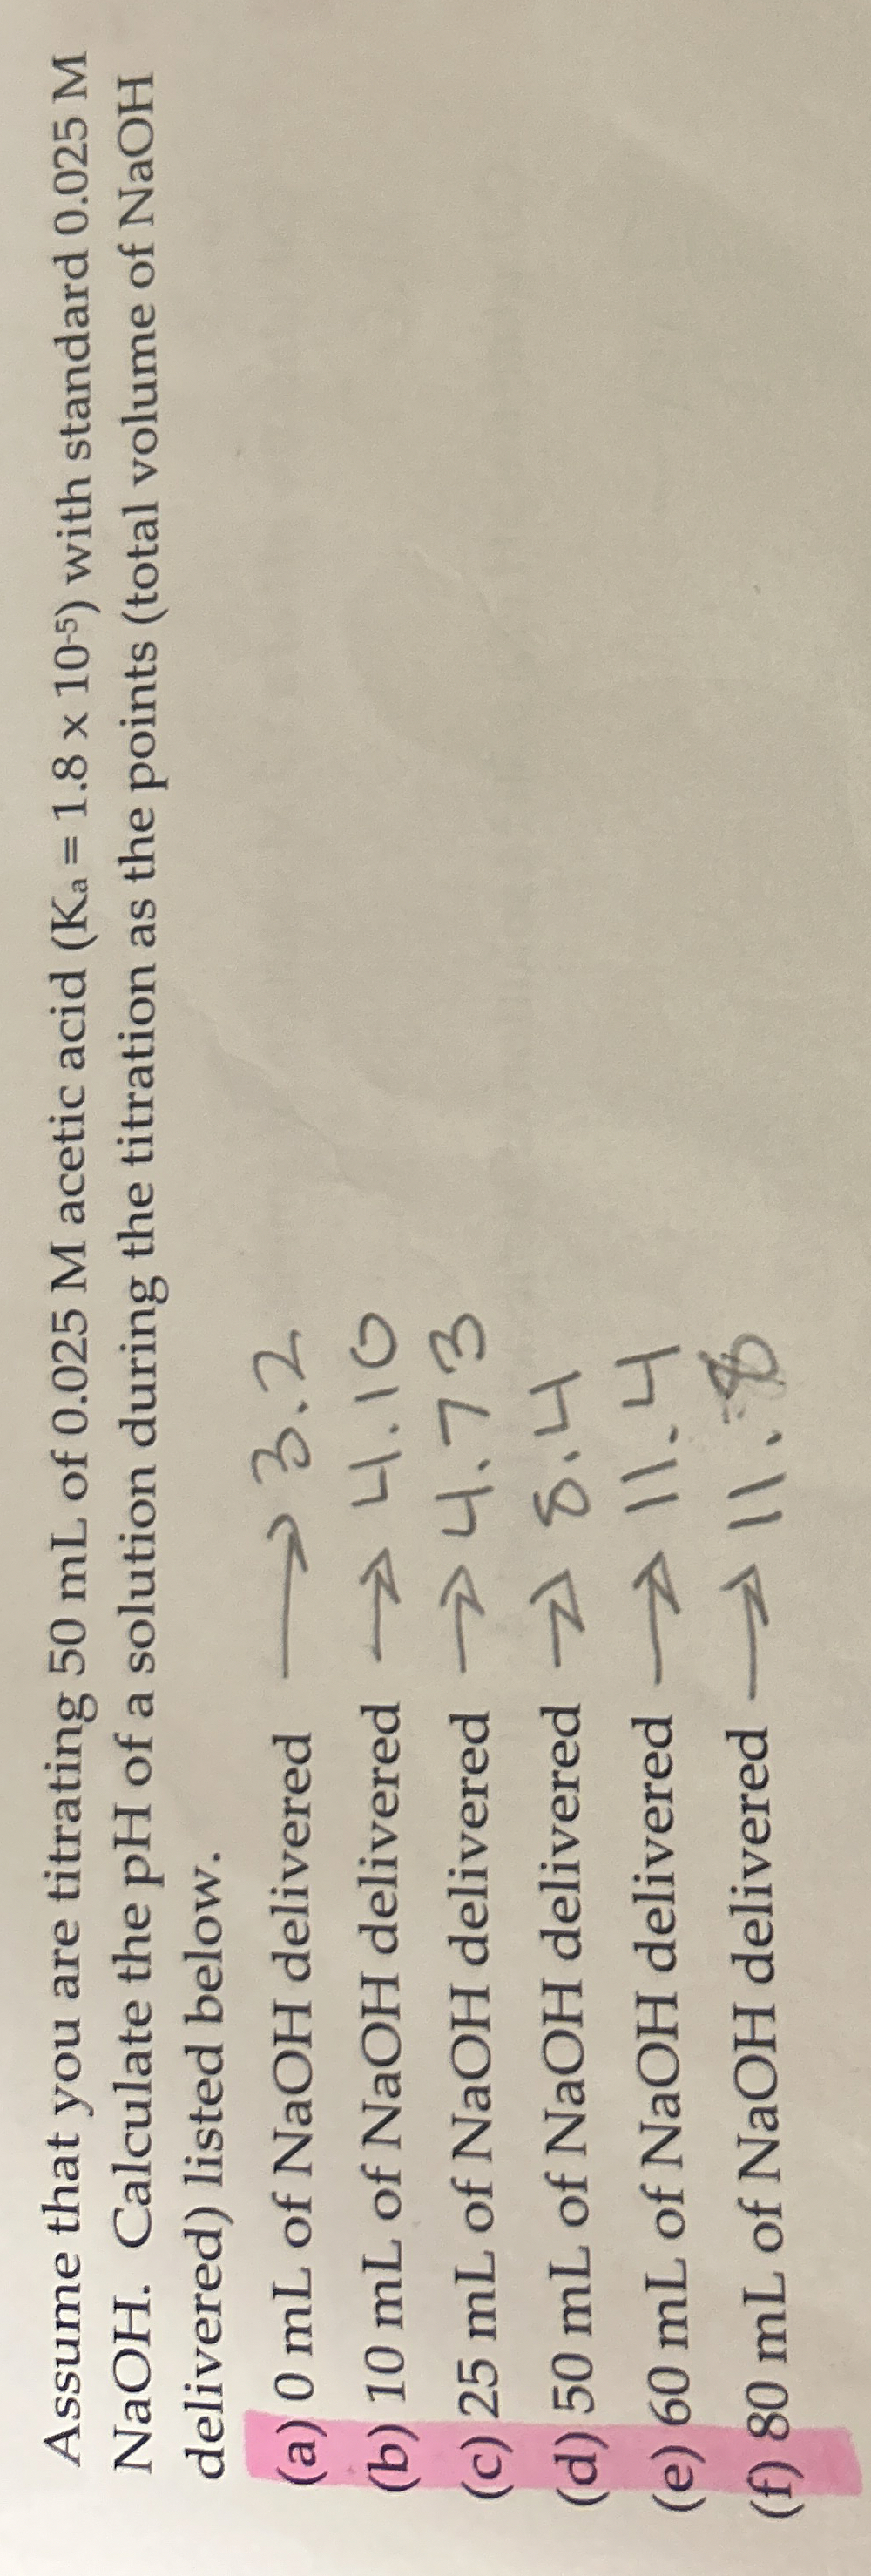 Assume that you are titrating 50 mL of 0.025 M acetic acid (Ka = 1.8 x 10-5) with standard 0.025 M
NaOH. Calculate the pH of a solution during the titration as the points (total volume of NaOH
delivered) listed below.
(a) 0 mL of NaOH delivered → 3.2
(b) 10 mL of NaOH delivered → 4.10
(c) 25 mL of NaOH delivered → 4.73
(d) 50 mL of NaOH delivered → 8.4
(e) 60 mL of NaOH delivered → 11.4
(f) 80 mL of NaOH delivered → 11.8